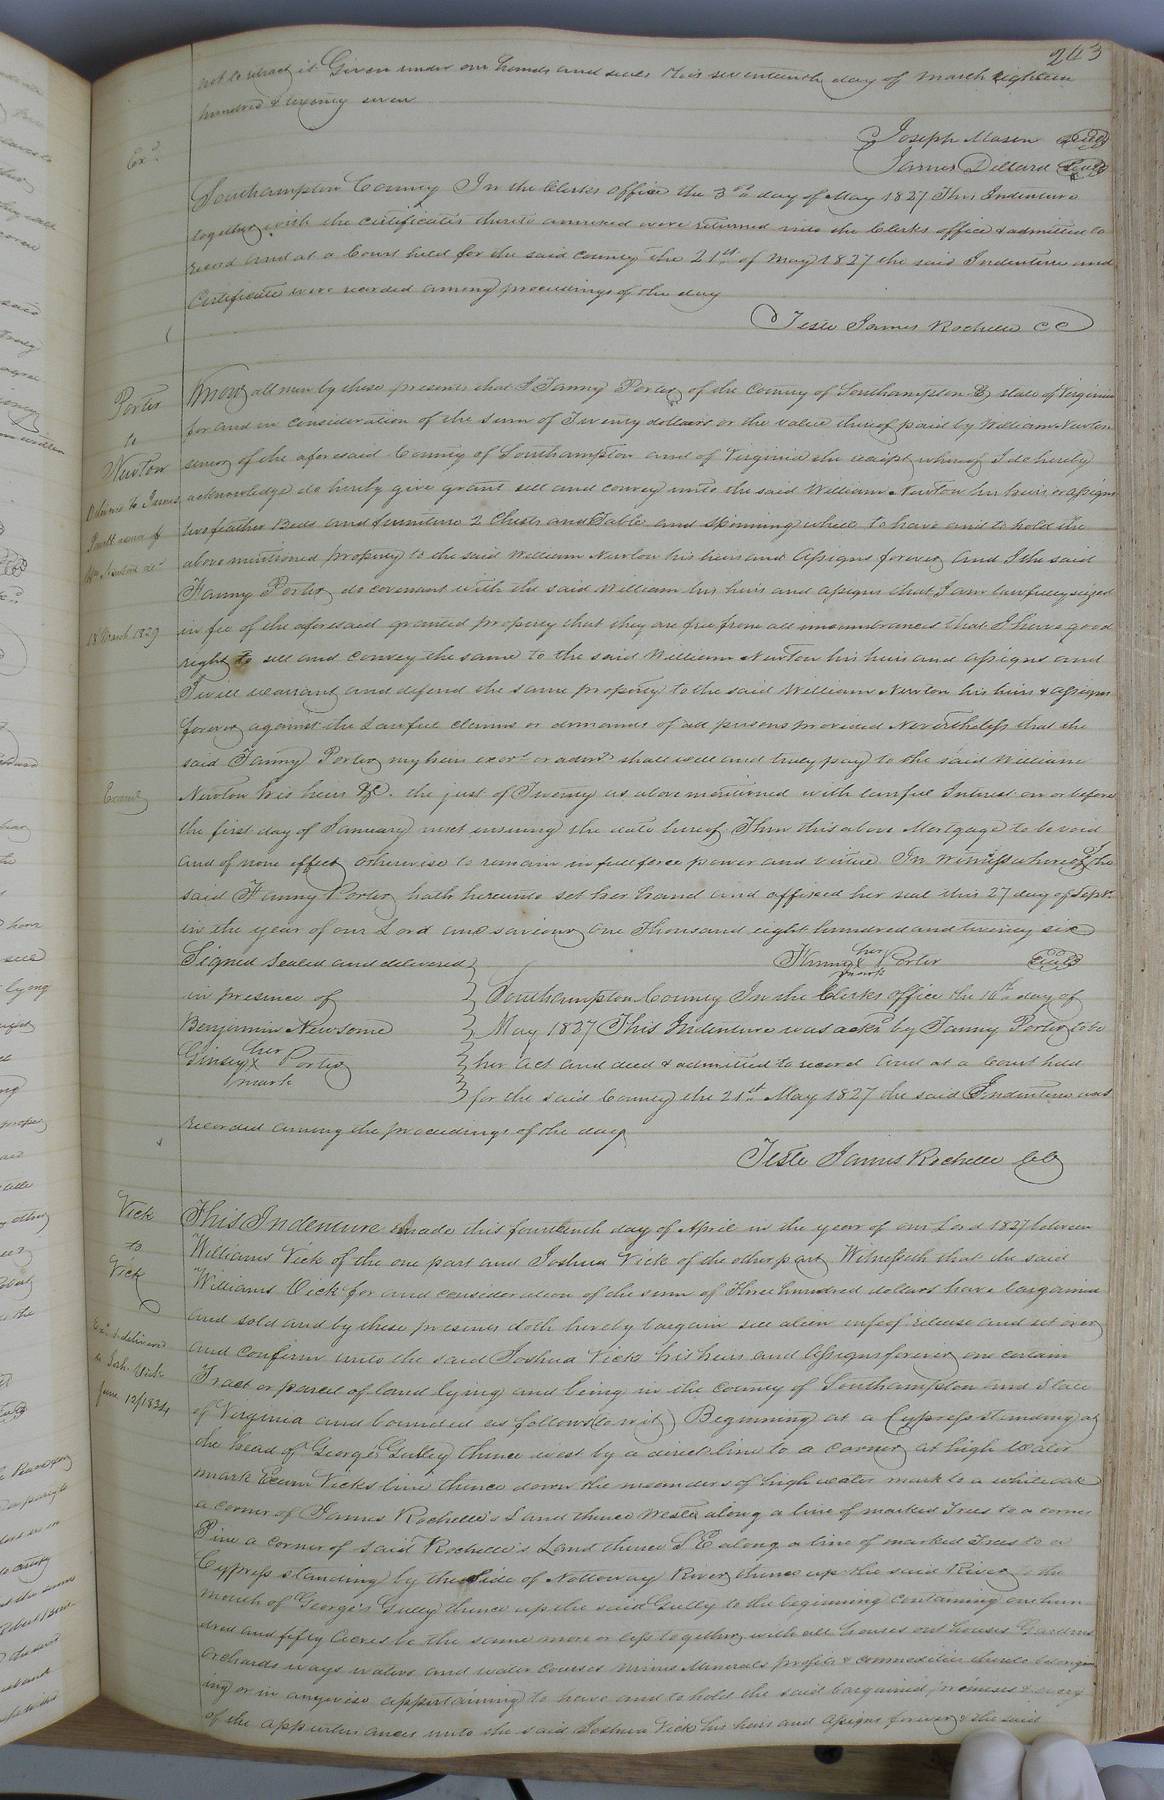 243
not to retract it Given under our hands and seals this seventeenth day of March eighteen
hundred & twenty seven
Joseph Mason Seal
James Dillard Seal
Exd.
Southampton County In the Clerks office the 3rd day of May 1827 This Indenture
together with the certificates thereto annexed were returned into the Clerks office & admitted to
record and at a Court held for the said county the 21st of May 1827 the said Indenture and
Certificate were recorded among proceedings of the day
Teste James Rochelle CC
Porter
to
Newton
18 March 1829
Examd
Know all men by these presents that I Fanny Porter of the County of Southampton & state of Virginia
for and in consideration of the sum of Twenty dollars or the value thereof paid by William Newton
senior of the aforesaid County of Southampton and of Virginia the receipt whereof I do hereby
acknowledge do hereby give grant sell and convey unto the said William Newton his heirs or assigns
two feather Beds and furniture 2 Chests and Table and Spinning wheel to have and to hold the
above mentioned property to the said William Newton his heirs and assigns forever and I the said
Fanny Porter do covenant with the said William his heirs and assigns that I am lawfully seized
in fee of the aforesaid granted property that they are free from all incumbrances that I have good
right to sell and convey the same to the said William Newton his heirs and assigns and
I will warrant and defend the same property to the said William Newton his heirs & assigns
forever against the Lawful claims or demands of all persons provided Nevertheless that the
said Fanny Porter my heirs exors or admrs shall well and truly pay to the said William
Newton his heirs &c. the just of Twenty as above mentioned with lawful Interest on or before
the first day of January next ensuing the date hereof Then this above Mortgage to be void
and of none effect otherwise to remain in full force power and virtue In Witness whereof I the
said Fanny Porter hath hereunto set her hand and affixed her seal this 27 day of Septr.
in the year of our Lord and saviour One Thousand eight hundred and twenty six
Signed Sealed and delivered
in presence of
Benjamin Newsome
Ginsey her X mark Porter
Fanny her X mark Porter Seal
Southampton County In the Clerks office the 16th day of
May 1827 This Indenture was ackd by Fanny Porter to be
her act and deed & admitted to record and at a Court held
for the said County the 21st May 1827 the said Indenture was
recorded among the proceedings of the day
Teste James Rochelle CC
Vick
to
Vick
June 12/1834
This Indenture made this fourteenth day of April in the year of our Lord 1827 between
Williams Vick of the one part and Joshua Vick of the other part Witnesseth that the said
Williams Vick for and consideration of the sum of Three hundred dollars have bargained
and sold and by these presents doth hereby bargain sell alien enfeof release and set over
and confirm unto the said Joshua Vick his heirs and assigns forever one certain
Tract or parcel of land lying and being in the county of Southampton and State
of Virginia and bounded as follows (to wit) Beginning at a Cypress standing at
the head of George's Gulley thence west by a direct line to a corner at high water
mark Vicks line thence down the meanders of high water mark to a white oak
a corner of James Rochelle's Land thence West along a line of marked Trees to a corner
Pine a corner of said Rochelle's Land thence S E along a line of marked trees to a
Cypress standing by the side of Nottoway River thence up the said River to the
mouth of George's Gully thence up the said Gully to the beginning containing one hun
dred and fifty Acres be the same more or less together with all houses out houses Gardens
Orchards ways waters and water courses mines Minerals profits & commodities thereto belong
ing or in anywise appertaining to have and to hold the said bargained premises & every
of the appurtenances unto the said Joshua Vick his heirs and assigns forever & the said